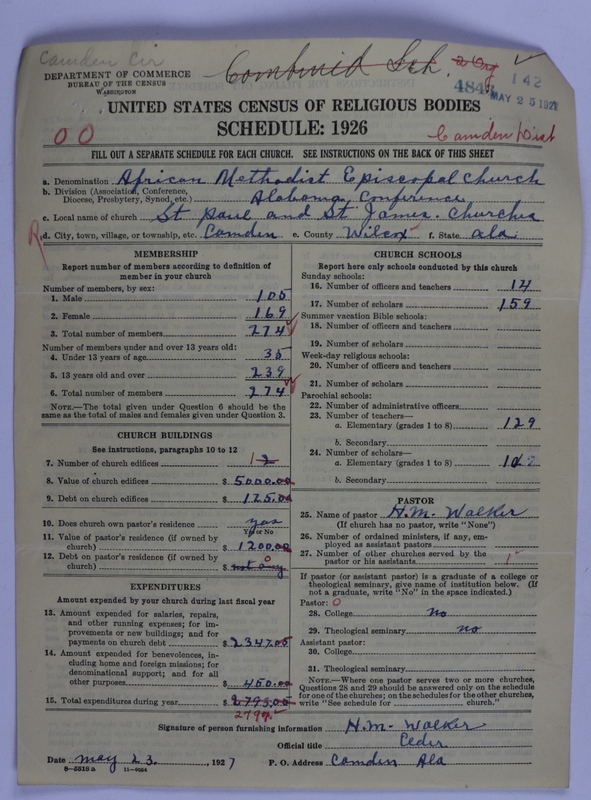 Camden Cir
Combined Sch. 2 Org
DEPARTMENT OF COMMERCE
BUREAU OF THE CENSUS
WASHINGTON
142
MAY 25 1927
UNITED STATES CENSUS OF RELIGIOUS BODIES
SCHEDULE: 1926
00
Camden Dist
FILL OUT A SEPARATE SCHEDULE FOR EACH CHURCH. SEE INSTRUCTIONS ON THE BACK OF THIS SHEET
a. Denomination African Methodist Episcopal Church
b. Division (Association, Conference, Diocese, Presbytery, Synod, etc.) Alabama Conference
c. Local name of church St Paul and St James. Churches
R d. City, town, village, or township, etc. Camden e. County Wilcox f. State ala
MEMBERSHIP
Report number of members according to definition of
member in your church
Number of members, by sex:
1. Male 105
2. Female 169
3. Total number of members 274
Number of members under and over 13 years old:
4. Under 13 years of age 35
5. 13 years old and over 239
6. Total number of members 274
NOTE.—The total given under Question 6 should be the
same as the total of males and females given under Question 3.
CHURCH BUILDINGS
See instructions, paragraphs 10 to 12
7. Number of church edifices 1 2
8. Value of church edifices $ 5000.00
9. Debt on church edifices $ 125.00
10. Does church own pastor's residence yes
Yes or No
11. Value of pastor's residence (if owned by
church) $ 1200.00
12. Debt on pastor's residence (if owned by
church) $ not any 0
EXPENDITURES
Amount expended by your church during last fiscal year
13. Amount expended for salaries, repairs,
and other running expenses; for im-
provements or new buildings; and for
payments on church debt $ 2347.05
14. Amount expended for benevolences, in-
cluding home and foreign missions; for
denominational support; and for all
other purposes $ 450.00
15. Total expenditures during year $ 2795.00
2797.
CHURCH SCHOOLS
Report here only schools conducted by this church
Sunday schools:
16. Number of officers and teachers 14
17. Number of scholars 159
Summer vacation Bible schools:
18. Number of officers and teachers
19. Number of scholars
Week-day religious schools:
20. Number of officers and teachers
21. Number of scholars
Parochial schools:
22. Number of administrative officers
23. Number of teachers—
a. Elementary (grades 1 to 8) 129
b. Secondary
24. Number of scholars—
a. Elementary (grades 1 to 8)
b. Secondary
PASTOR
25. Name of pastor H.M. Walker
(If church has no pastor, write "None")
26. Number of ordained ministers, if any, em-
ployed as assistant pastors
27. Number of other churches served by the
pastor or his assistants 1
If pastor (or assistant pastor) is a graduate of a college or
theological seminary, give name of institution below. (If
not a graduate, write "No" in the space indicated.)
Pastor: 0
28. College no
29. Theological seminary no
Assistant pastor:
30. College
31. Theological seminary
NOTE.—Where one pastor serves two or more churches,
Questions 28 and 29 should be answered only on the schedule
for one of the churches; on the schedules for the other churches,
write "See schedule for church."
Signature of person furnishing information H.M. Walker
Official title Elder
Date may 23. , 1927 P. O. Address Camden Ala